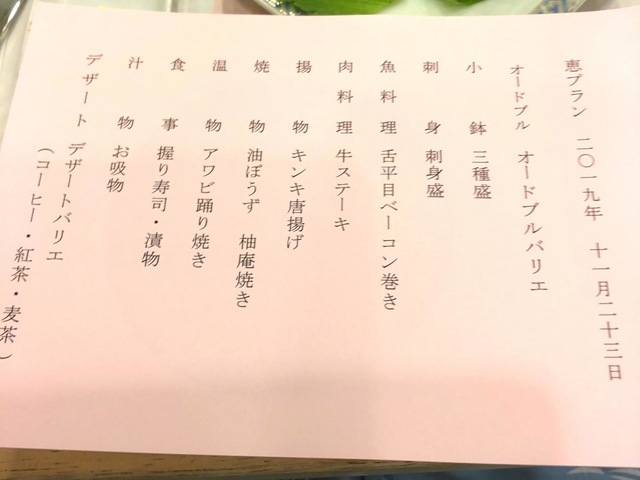 恵プラン 二〇一九年 十一月二十三日
オードブル オードブルバリエ
小鉢 三種盛
刺身 刺身盛
魚料理 舌平目ベーコン巻き
肉料理 牛ステーキ
揚物 キンキ唐揚げ
焼物 油ぼうず 柚庵焼き
温物 アワビ踊り焼き
食事 握り寿司・漬物
汁物 お吸物
デザート デザートバリエ
(コーヒー・紅茶・麦茶)